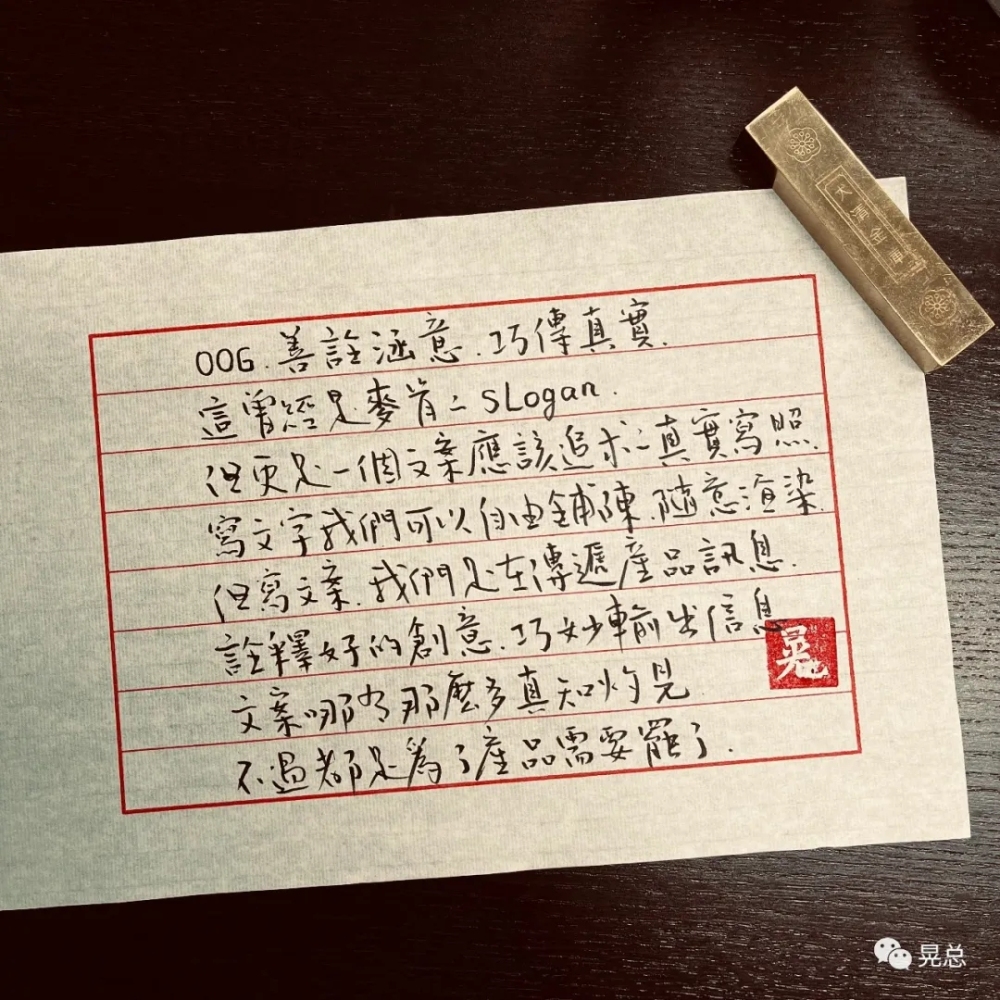 006.善詮涵意.巧傳真實.
這曾經是麥肯二SLogan.
但更是一個文案應該追求二真實寫照.
寫文字我們可以自由鋪陳.隨意渲染.
但寫文案.我們是在傳遞產品訊息.
詮釋好的創意.巧妙輸出信息
文案哪有那麼多真知灼見
不過都是為了產品需要罷了.
晃
晃总